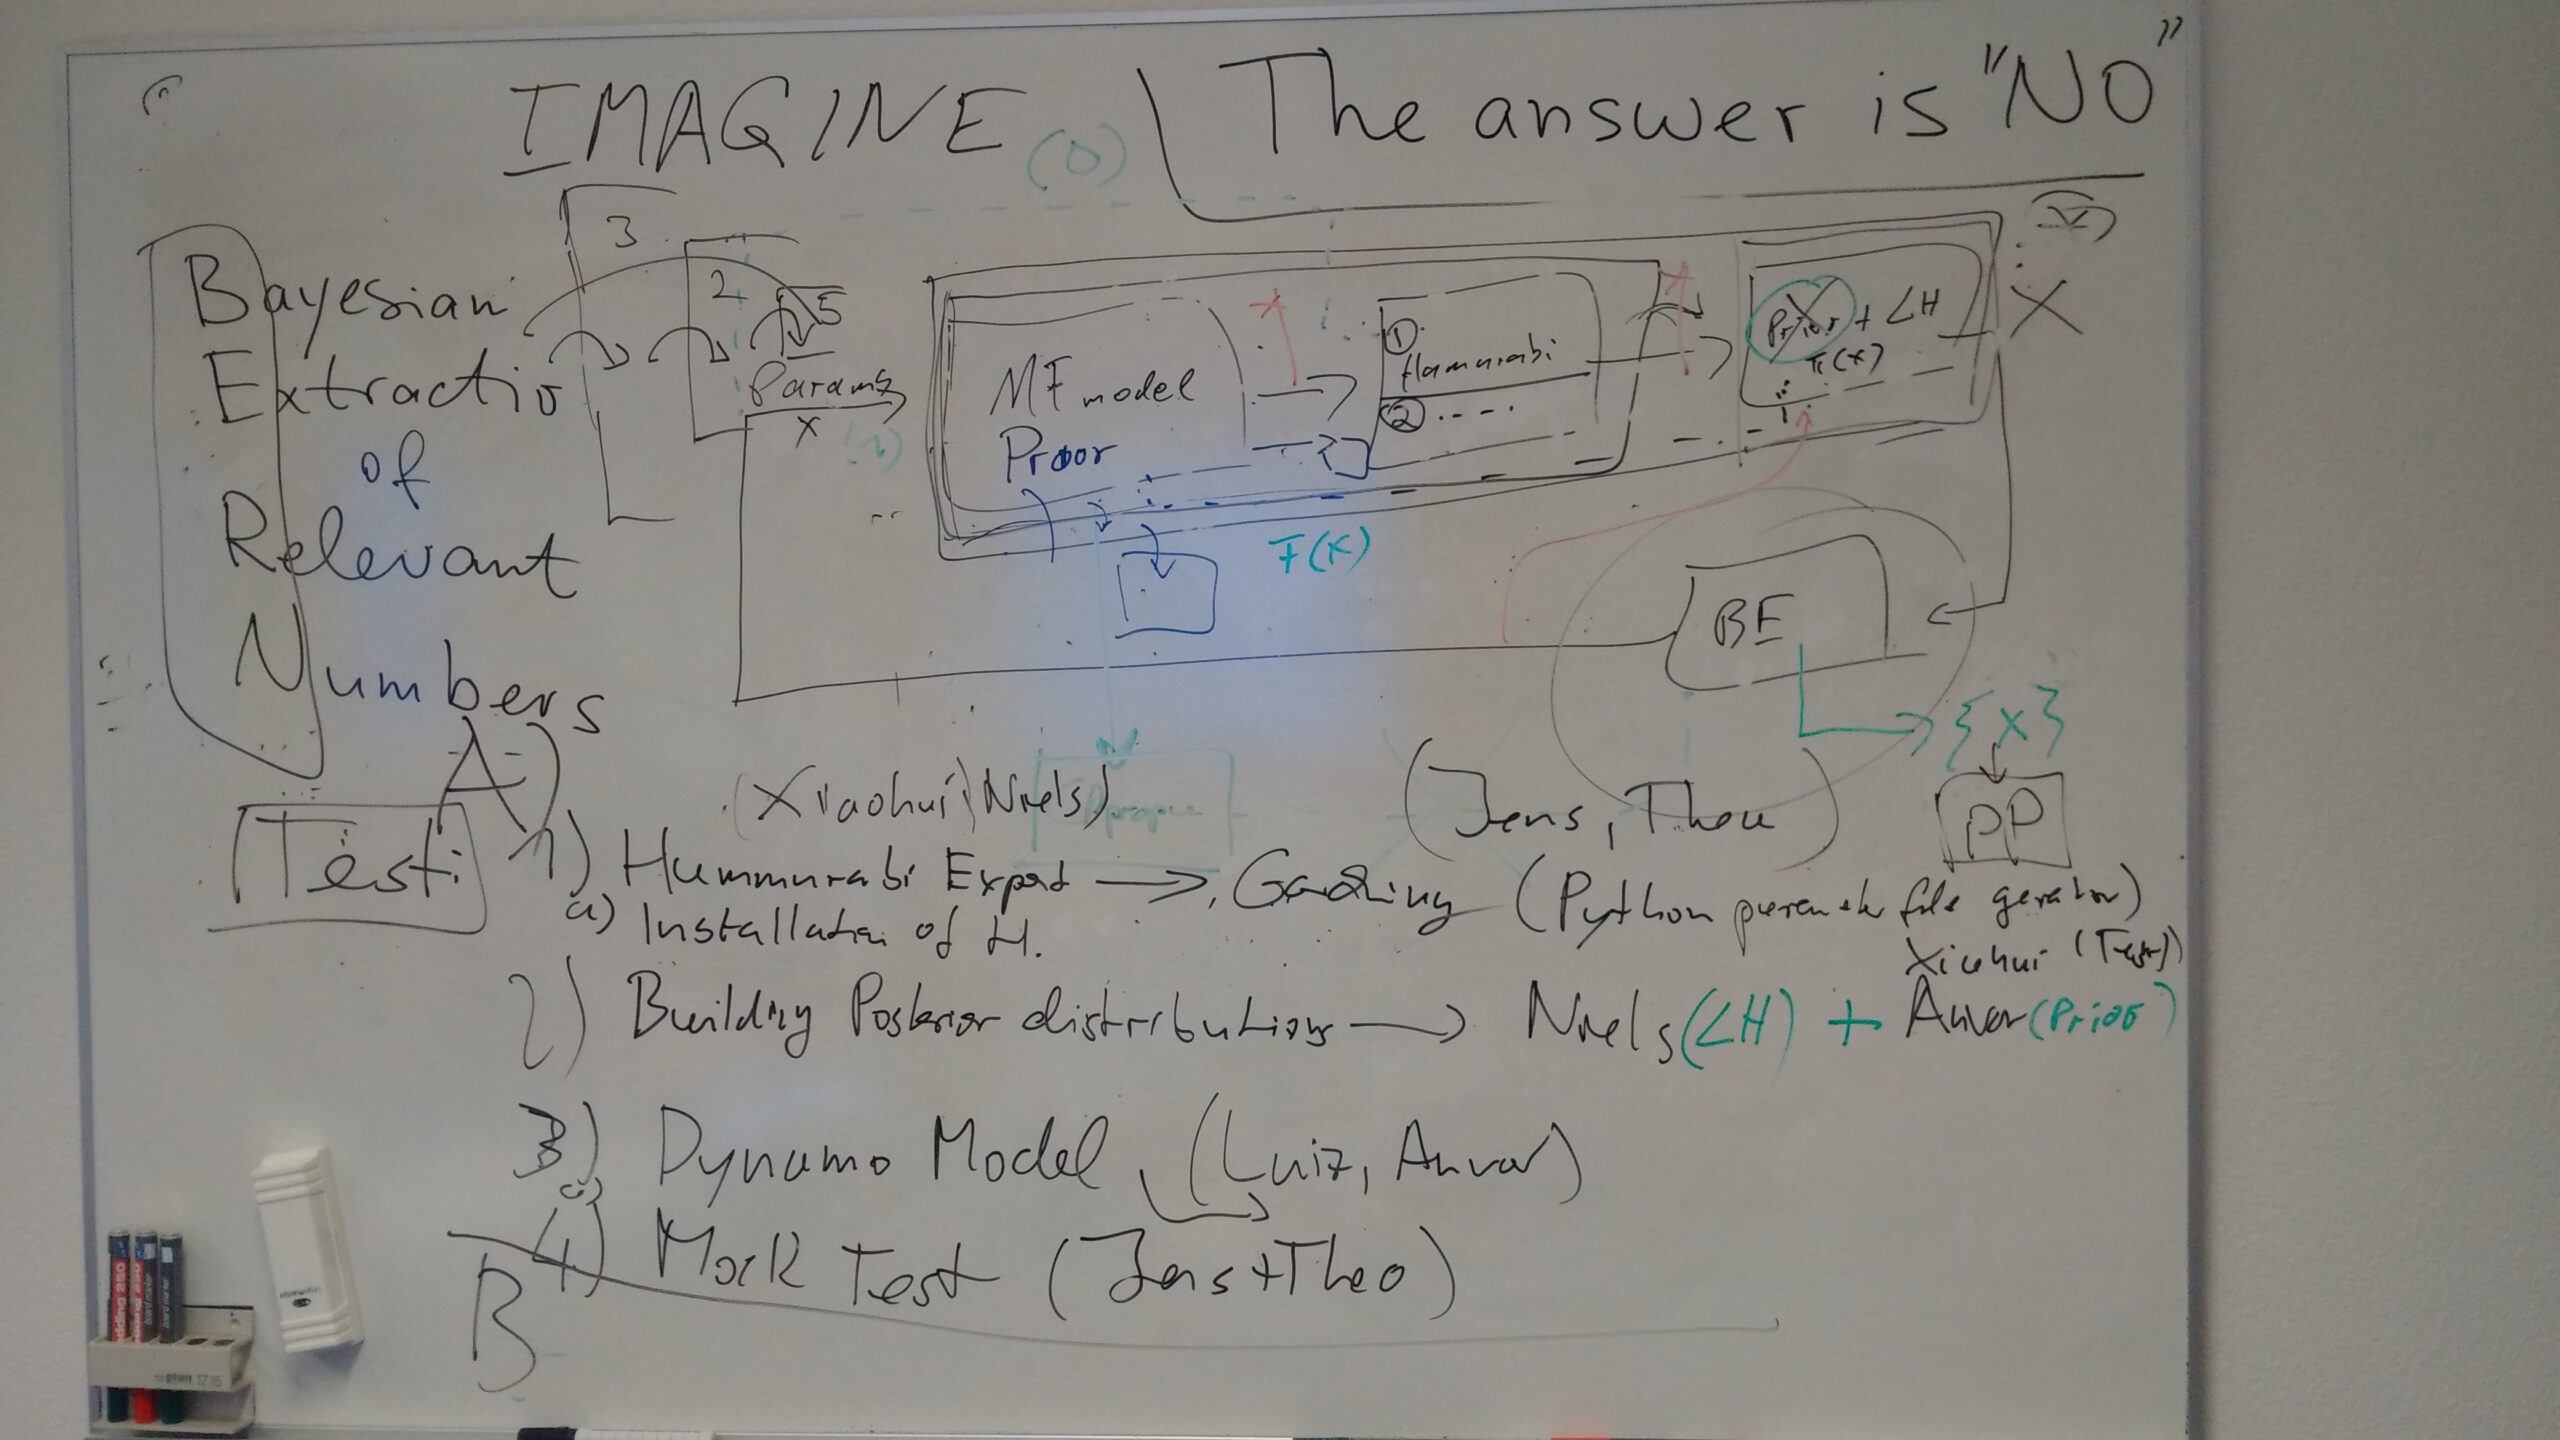 IMAGINE
The answer is "NO"
(0)
3
2
5
Bayesian
Extractio
of
Relevant
Numbers
Params
x
MF model
Prior
① Hamurabi
② ....
Prior + LH
π(x)
X
F(x)
BE
{x}
PP
A)
Test:
(Xiaohui\Niels)
(Jens, Theo)
1) Hummurabi Expert → (Python parameter file gerator)
a) Installation of H.
Xiaohui (Test)
2) Building Posterior distributions → Niels (LH) + Anvar (Prior)
3) Dynamo Model (Luiz, Anvar)
4) Mock Test (Jens+Theo)
B
plan 1216